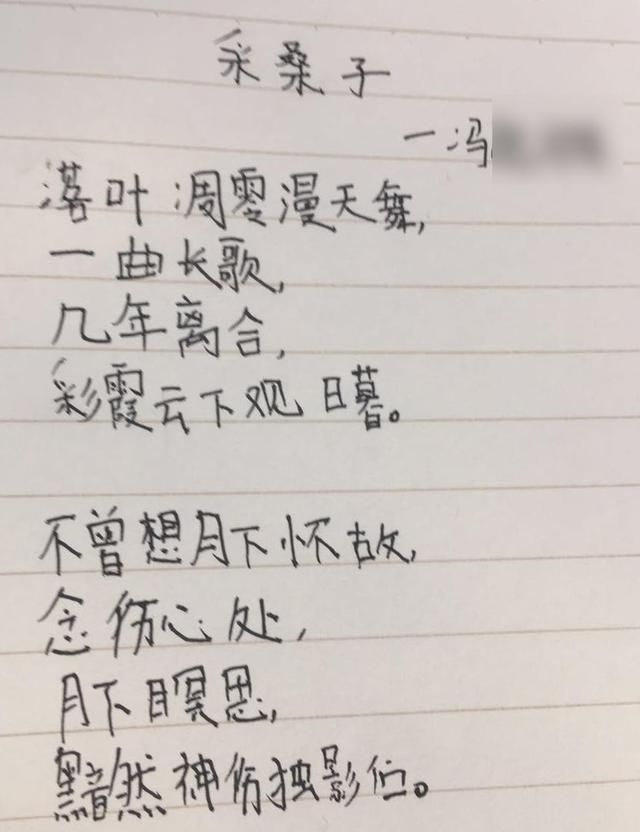 采桑子
一冯
落叶凋零漫天舞,
一曲长歌,
几年离合,
彩霞云下观日暮。
不曾想月下怀故,
念伤心处,
月下瞑思,
黯然神伤独影伫。